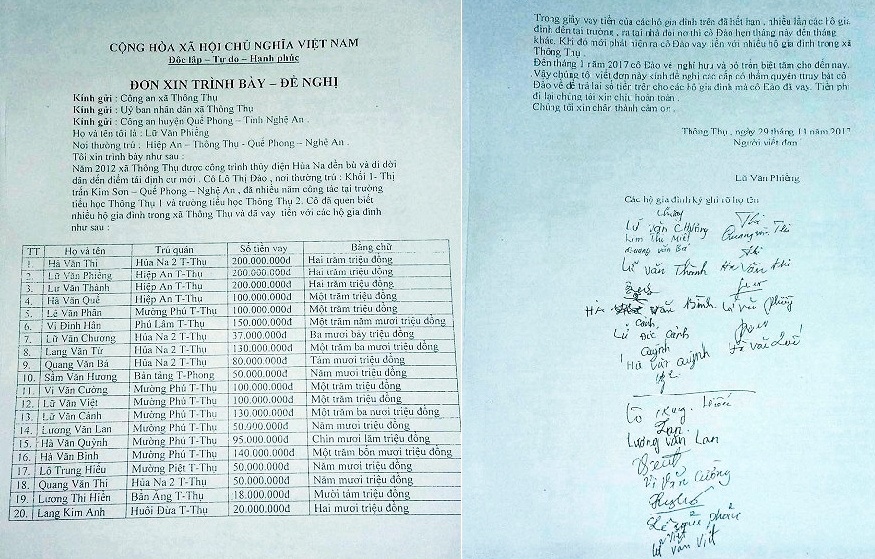 CỘNG HÒA XÃ HỘI CHỦ NGHĨA VIỆT NAM
Độc lập – Tự do – Hạnh phúc
ĐƠN XIN TRÌNH BÀY – ĐỀ NGHỊ
Kính gửi : Công an xã Thông Thụ
Kính gửi : Uỷ ban nhân dân xã Thông Thụ
Kính gửi : Công an huyện Quế Phong – Tỉnh Nghệ An .
Họ và tên tôi là : Lữ Văn Phiêng
Nơi thường trú : Hiệp An – Thông Thụ - Quế Phong – Nghệ An .
Tôi xin trình bày như sau :
Năm 2012 xã Thông Thụ được công trình thủy điện Hủa Na đền bù và di dời
dân đến điểm tái định cư mới . Cô Lô Thị Đào , nơi thường trú : Khối 1- Thị
trấn Kim Sơn – Quế Phong – Nghệ An , đã nhiều năm công tác tại trường
tiểu học Thông Thụ 1 và trường tiểu học Thông Thụ 2. Cô đã quen biết
nhiều hộ gia đình trong xã Thông Thụ và đã vay tiền với các hộ gia đình
như sau :
TT Họ và tên Trú quán Số tiền vay Bằng chữ
1. Hà Văn Thi Hủa Na 2 T-Thụ 200.000.000đ Hai trăm triệu đồng
2. Lữ Văn Phiêng Hiệp An T-Thụ 200.000.000đ Hai trăm triệu đồng
3. Lư Văn Thành Hiệp An T-Thụ 200.000.000đ Hai trăm triệu đồng
4. Hà Văn Quế Hiệp An T-Thụ 100.000.000đ Một trăm triệu đồng
5. Lê Văn Phần Mường Phú T-Thụ 100.000.000đ Một trăm triệu đồng
6. Vi Đình Hân Phú Lâm T-Thụ 150.000.000đ Một trăm năm mươi triệu đồng
7. Lữ Văn Chương Hủa Na 2 T-Thụ 37.000.000đ Ba mươi bảy triệu đồng
8. Lang Văn Từ Hủa Na 2 T-Thụ 130.000.000đ Một trăm ba mươi triệu đồng
9. Quang Văn Bá Hủa Na 2 T-Thụ 80.000.000đ Tám mươi triệu đồng
10. Sầm Văn Hương Bản tảng T-Phong 50.000.000đ Năm mươi triệu đồng
11. Vi Văn Cường Mường Phú T-Thụ 100.000.000đ Một trăm triệu đồng
12. Lữ Văn Việt Mường Phú T-Thụ 100.000.000đ Một trăm triệu đồng
13. Lữ Văn Cảnh Mường Phú T-Thụ 130.000.000đ Một trăm ba nươi triệu đồng
14. Lương Văn Lan Mường Phú T-Thụ 50.000.000đ Năm mươi triệu đồng
15. Hà Văn Quỳnh Mường Phú T-Thụ 95.000.000đ Chín mươi lăm triệu đồng
16. Hà Văn Bình Mường Phú T-Thụ 140.000.000đ Một trăm bốn mươi triệu đồng
17. Lô Trung Hiếu Mường Piệt T-Thụ 50.000.000đ Năm mươi triệu đồng
18. Quang Văn Thi Hủa Na 2 T-Thụ 50.000.000đ Năm mươi triệu đồng
19. Lương Thị Hiền Bản Ăng T-Thụ 18.000.000đ Mười tám triệu đồng
20. Lang Kim Anh Huôi Đừa T-Thụ 20.000.000đ Hai mươi triệu đồng
Trong giấy vay tiền của các hộ gia đình trên đã hết hạn , nhiều lần các hộ gia
đình đến tại trường , ra tại nhà đòi nợ thì cô Đào hẹn tháng này đến tháng
khác. Khi đó mới phát hiện ra cô Đào vay tiền với nhiều hộ gia đình trong xã
Thông Thụ .
Đến tháng 1 năm 2017 cô Đào về nghỉ hưu và bỏ trốn biệt tăm cho đến nay.
Vậy chúng tô viết đơn này kính đề nghị các cấp có thẩm quyền truy bắt cô
Đào về để trả lại số tiền trên cho các hộ gia đình mà cô Đào đã vay. Tiền phí
đi lại chúng tôi xin chịu hoàn toàn .
Chúng tôi xin chân thành cảm ơn .
Thông Thụ , ngày 29 tháng 11 năm 2017
Người viết đơn
Lữ Văn Phiêng
Các hộ gia đình ký ghi rõ họ tên
Chương Thi
Lữ văn Chương Quang văn Thi
Lữ văn Thành Hà Văn Thi
văn Bình Lữ văn Phiêng
Cảnh
Lữ Cảnh
Quỳnh
Hà văn Quỳnh
Lan
Lương văn Lan
Vi Văn Cường
Việt
Lữ Văn Việt